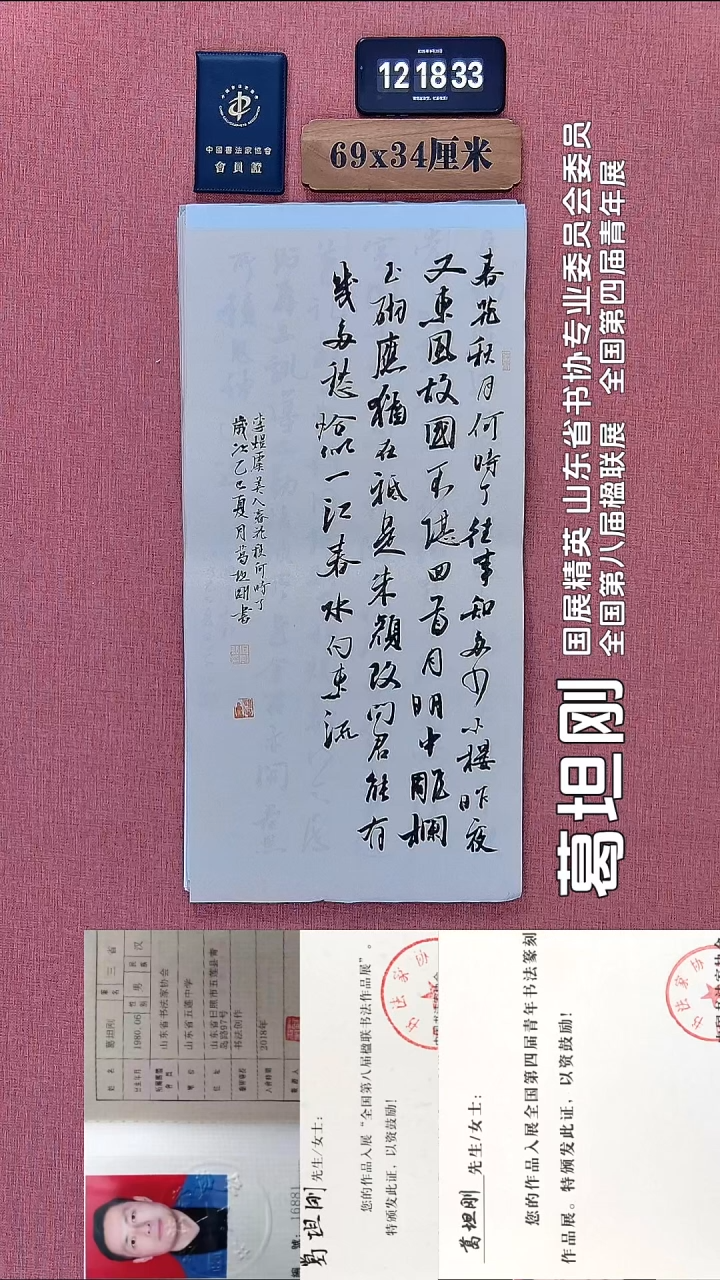 中國書法家協會
會員證
12 18 33
69x34厘米
春花秋月何時了往事知多少小樓昨夜
又東風故國不堪回首月明中雕欄
玉砌應猶在祗是朱顏改問君能有
幾多愁恰似一江春水向東流
李煜虞美人春花秋月何時了
歲次乙巳夏月葛坦剛書
葛坦刚
国展精英 山东省书协专业委员会委员
全国第八届楹联展 全国第四届青年展
姓名 葛坦刚
1980.06
性别 男
民族 汉
山东省书法家协会
山东省五莲中学
山东省日照市五莲县青
岛路97号
书法创作
入会时间 2018年
編號:16881
葛坦刚 先生/女士:
您的作品入展“全国第八届楹联书法作品展”。
特颁发此证,以资鼓励!
葛坦刚 先生/女士:
您的作品入展全国第四届青年书法篆刻
作品展。特颁发此证,以资鼓励!